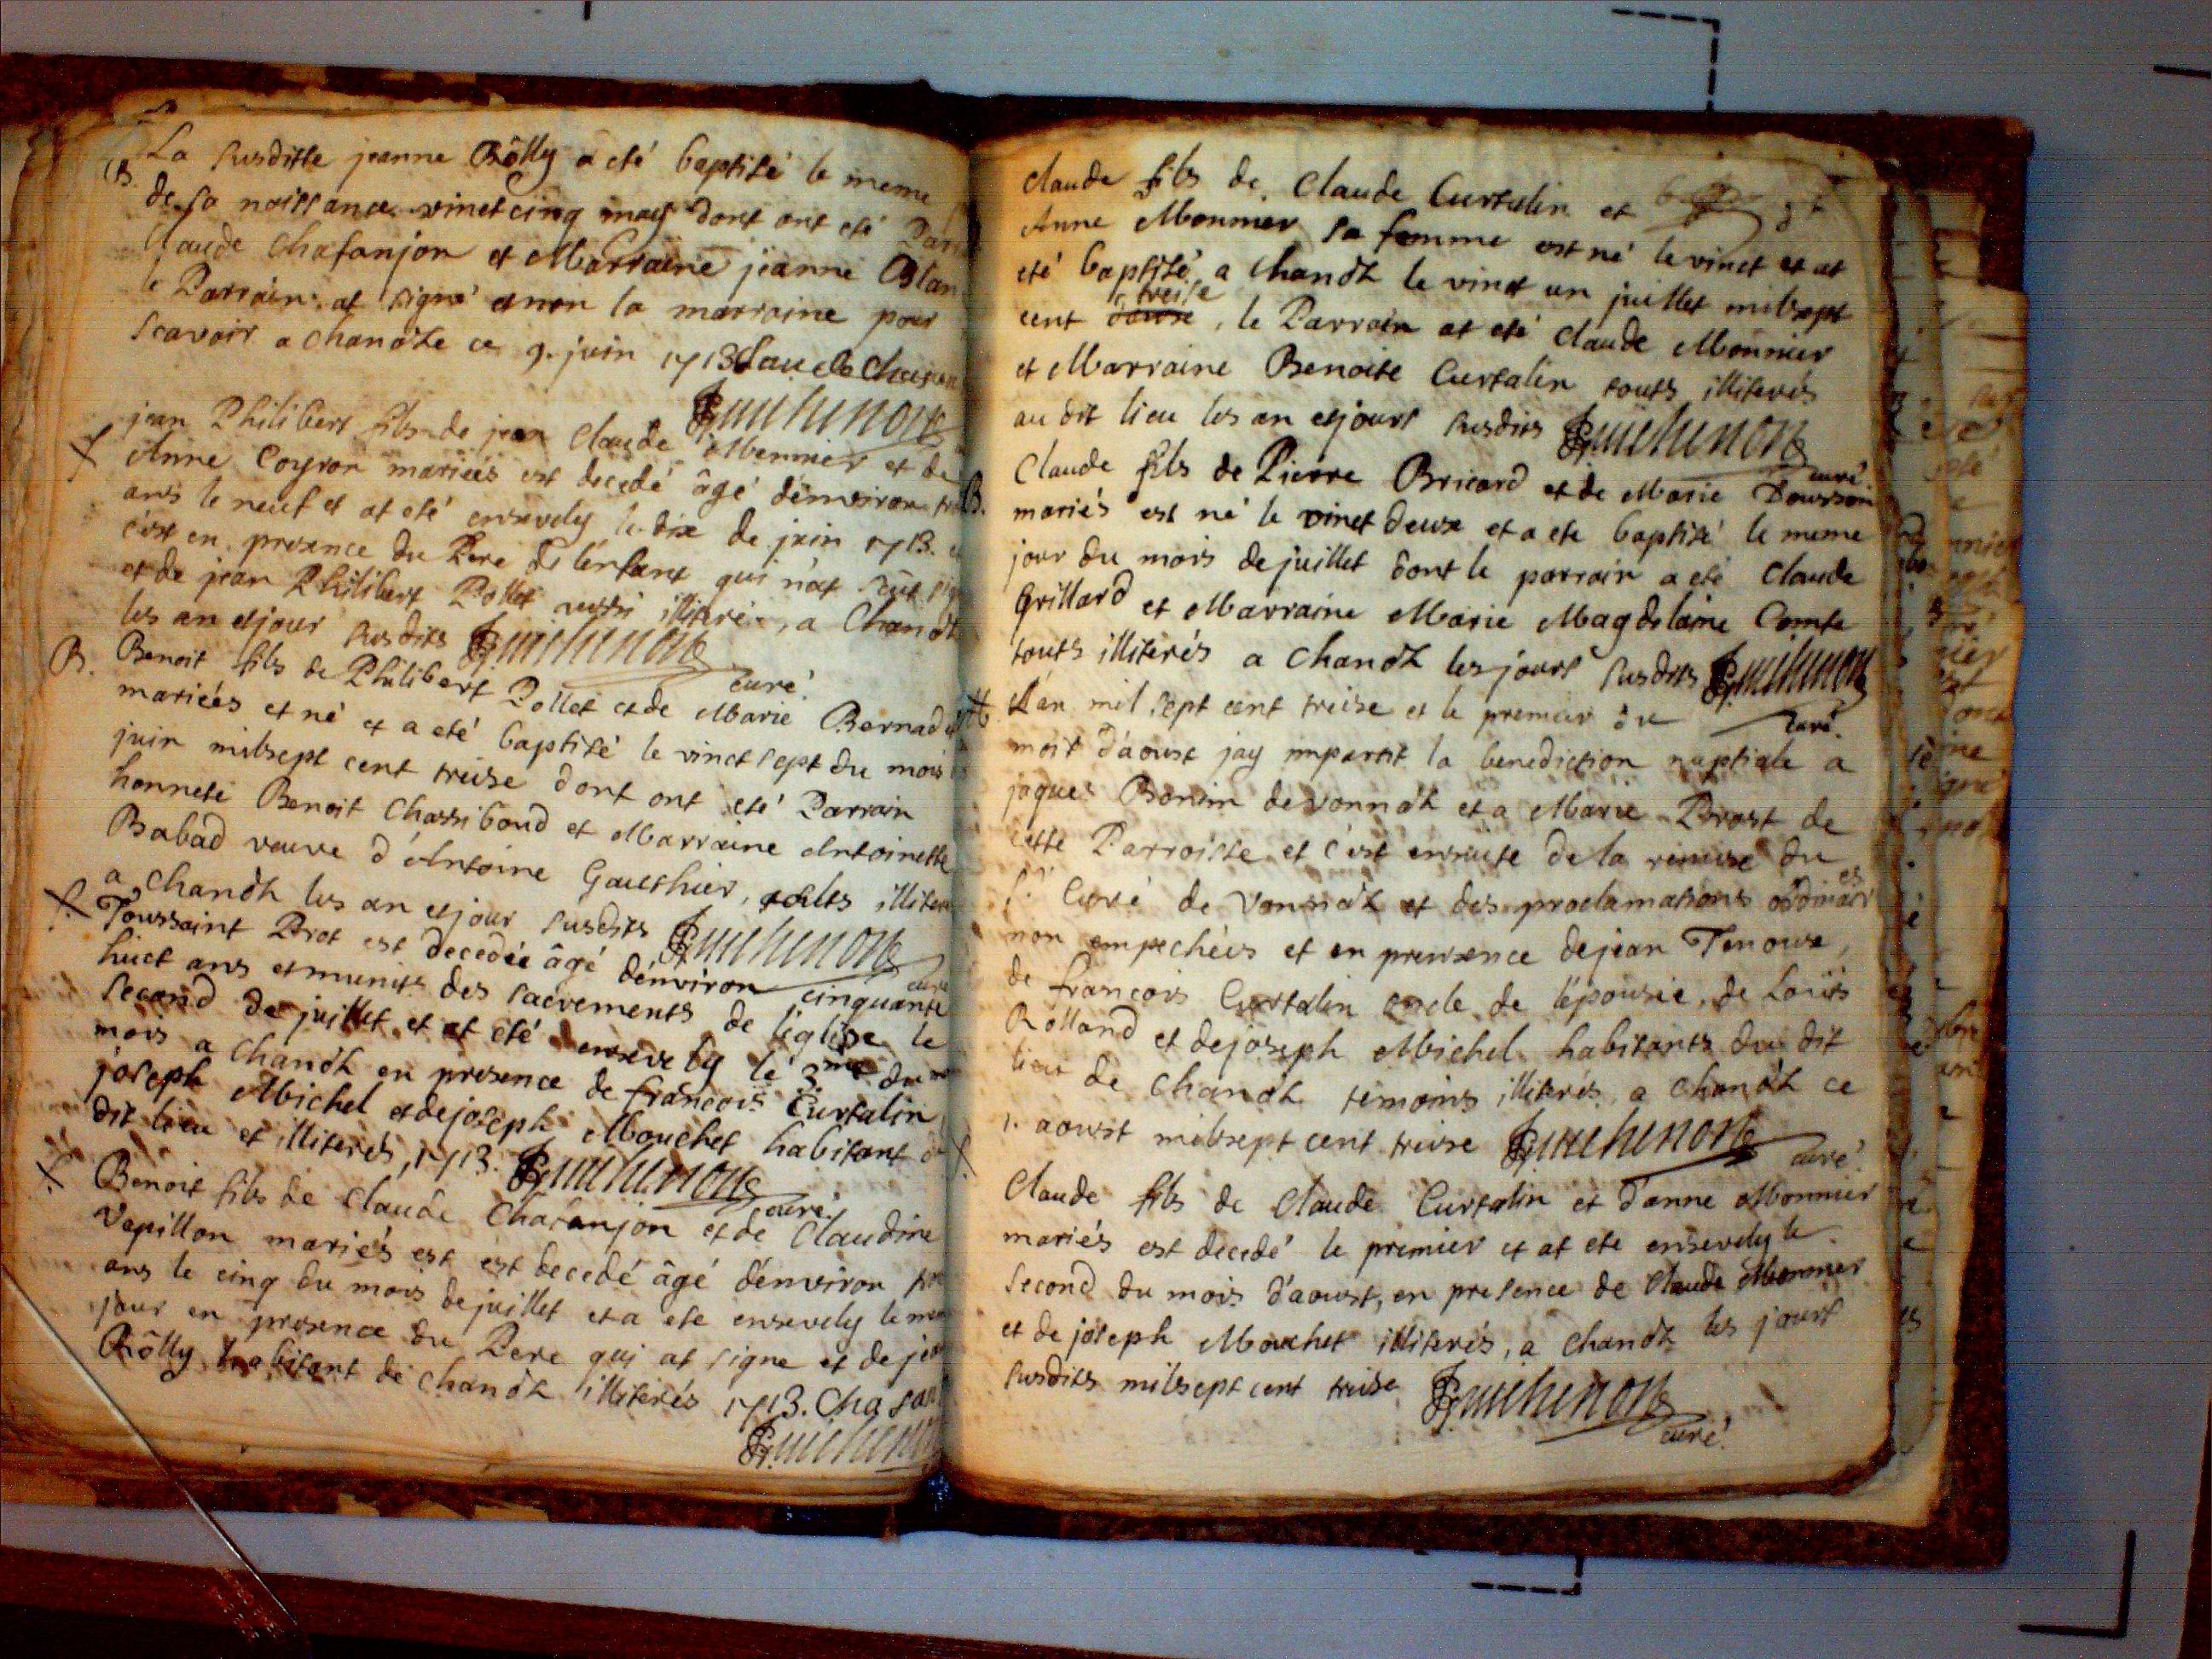 B. La susditte jeanne Rôlly a eté baptisé le meme
de sa naissance vinct cinq may dont ont eté Par
Claude Chafanjon et Marraine jeanne Blan
le Parrain at signé et non la marraine pour
scavoir a chanoz ce 9. juin 1713 Claude Chafan
Guichenon
jean Philibert fils de jean Claude Monnier et de
Anne Coyron mariées est decedé âgé d'environ
ans le neuf et at eté ensevely le dix de juin 1713.
c'est en presence du Pere de l'enfant qui n'at sçut sig
et de jean Philibert Pollet aussi illiteré, a Chanoz
les an et jour susdits Guichenon
curé.
B. Benoit fils de Philibert Pollet et de Marie Bernad
mariées et né et a eté baptisé le vinct sept du mois
juin mil sept cent treise dont ont eté Parrain
honnete Benoit Chassiboud et Marraine Antoinette
Babad veuve d'Antoine Gauthier, touts illiter
a chanoz les an et jour susdits Guichenon
curé
Toussaint Prot est decedée âgé d'environ cinquante
huict ans et munits des sacrements de l'église le
second de juillet et at eté ensevely le 3me du
mois a chanoz en presence de francois Curtalin
joseph Michel et de joseph Mouchet habitant
dit lieu et illiterés, 1713. Guichenon
curé.
Benoit fils de Claude Chafanjon et de Claudine
Vapillon mariés est est decedé âgé d'environ
ans le cinq du mois de juillet et a ete ensevely le mem
jour en presence du Pere qui at signe et de jean
Rôlly habitant de chanoz illiterés 1713. Chafan
Guichenon
claude fils de Claude Curtalin et
Anne Monnier sa femme est né le vinct et at
eté baptisé a chanoz le vinct un juillet mil sept
treise
cent douse, le Parrain at eté Claude Monnier
et Marraine Benoite Curtalin touts illiterés
au dit lieu les an et jours susdits Guichenon
curé
B. Claude fils de Pierre Bricard et de Marie
mariés est né le vinct deux et a ete baptisé le meme
jour du mois de juillet dont le parrain a eté Claude
Grillard et Marraine Marie Magdelaine Comte
touts illiterés a chanoz les jours susdits Guichenon
L'an mil sept cent treise et le premier du
curé.
mois d'aoust jay impartit la benediction nuptiale a
jaques Bonin de vonnaz et a Marie Prost de
cette Parroisse et c'est ensuite de la remise du
Sr. Curé de Vonnaz et des proclamations ordinaires
non empechées et en presence de jean Tenoux,
de francois Curtalin oncle de l'épousée, de Loüis
Rolland et de joseph Michel habitants du dit
lieu de chanoz temoins illiterés, a chanoz ce
1. aoust mil sept cent treise Guichenon
curé.
Claude fils de Claude Curtalin et d'anne Monnier
mariés est decedé le premier et at ete ensevely le
second du mois d'aoust, en presence de Claude Monnier
et de joseph Mouchet illiterés, a chanoz les jours
susdits mil sept cent treise Guichenon
curé.